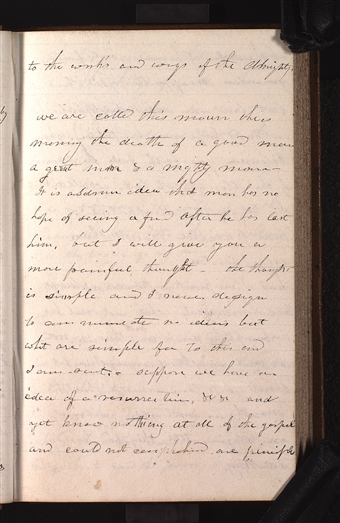 to the works and ways of the Almighty.
we are called this mourn this
morning the death of a good man
a great man & a mighty man
It is a solemn idea that man has no
hope of seeing a frnd after he has lost
him, but I will give you a
more painful thought - the thought
is simple and I never design
to communicate no ideas but
what are simple for to this end
I am sent. suppose we have an
idea of a resurrection, &c &c and
yet know nothing at all of the gospel
and could not comprehend one principle